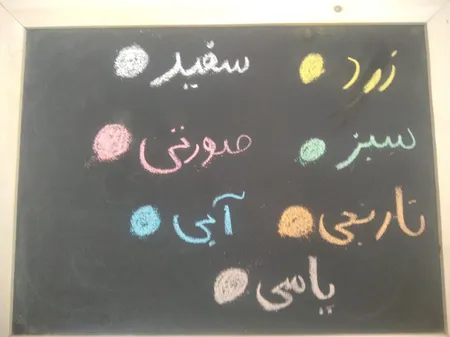 زرد سفید
سبز صورتی
نارنجی آبی
یاسی